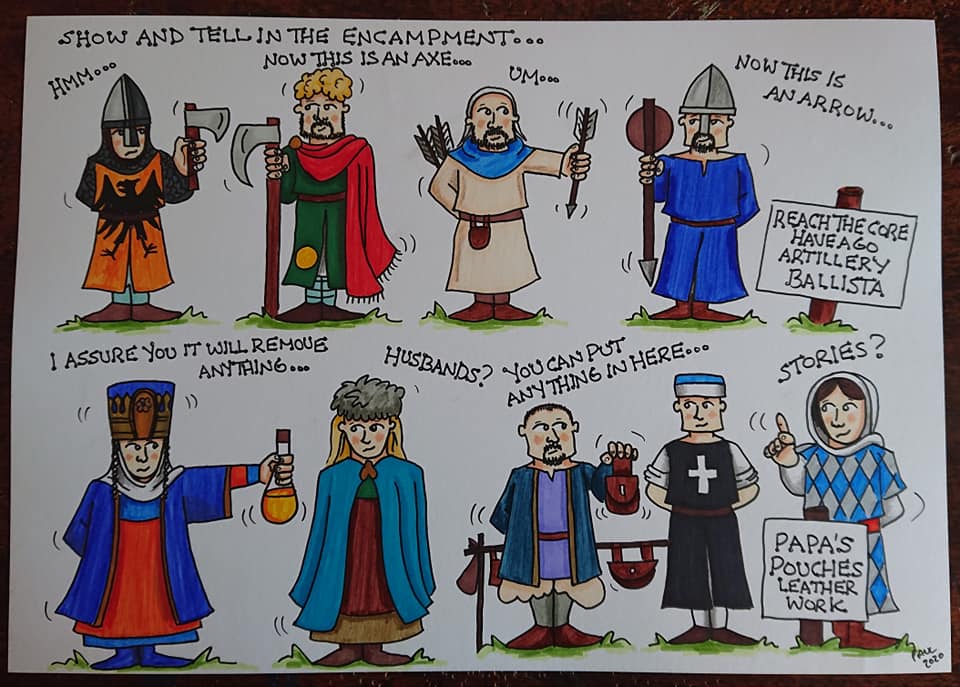 SHOW AND TELL IN THE ENCAMPMENT...
HMM...
NOW THIS IS AN AXE...
UM...
NOW THIS IS
AN ARROW...
REACH THE CORE
HAVE A GO
ARTILLERY
BALLISTA
I ASSURE YOU IT WILL REMOVE
ANYTHING...
HUSBANDS?
YOU CAN PUT
ANYTHING IN HERE...
STORIES?
PAPA'S
POUCHES
LEATHER
WORK
PAUL
2020